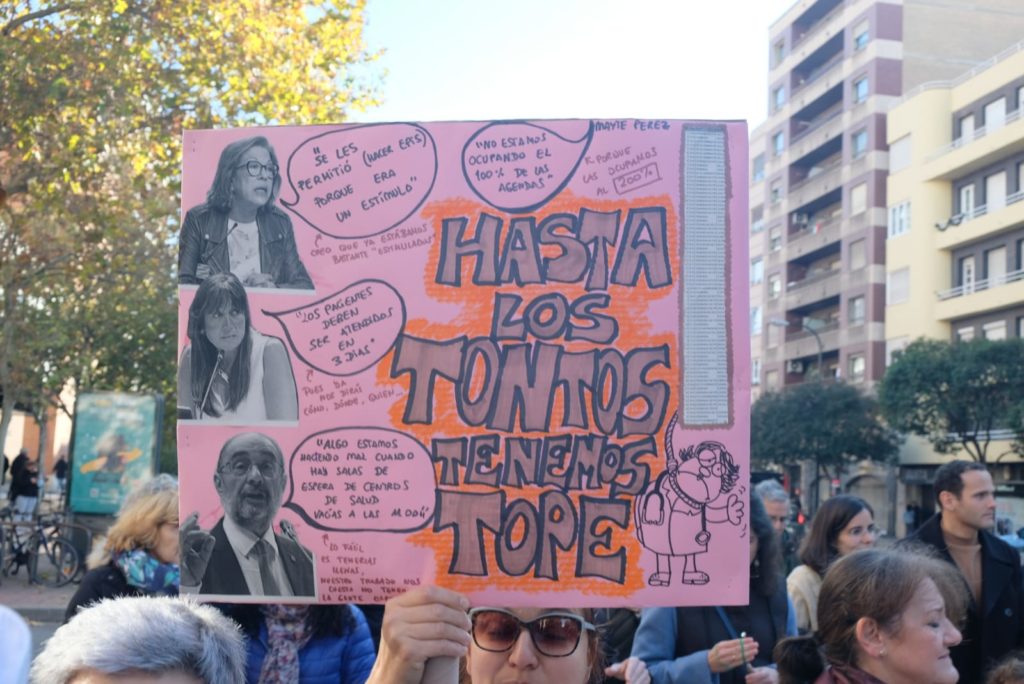 "SE LES
PERMITIÓ (HACER EPIS)
PORQUE ERA
UN ESTÍMULO"
CREO QUE YA ESTÁBAMOS
BASTANTE "ESTIMULADOS"
"NO ESTAMOS
OCUPANDO EL
100% DE LAS
AGENDAS"
MAYTE PEREZ
PORQUE
LAS OCUPAMOS
AL 200%
"LOS PACIENTES
DEBEN
SER ATENDIDOS
EN
3 DÍAS"
PUES YA
NOS DIRÁS
CÓMO, DÓNDE, QUIEN...
"ALGO ESTAMOS
HACIENDO MAL CUANDO
HAY SALAS DE
ESPERA DE CENTROS
DE SALUD
VACÍAS A LAS
LO FÁCIL
ES TENERLAS
LLENAS,
NUESTRO TRABAJO NOS
CUESTA NO TENER
LA GENTE
HASTA
LOS
TONTOS
TENEMOS
TOPE